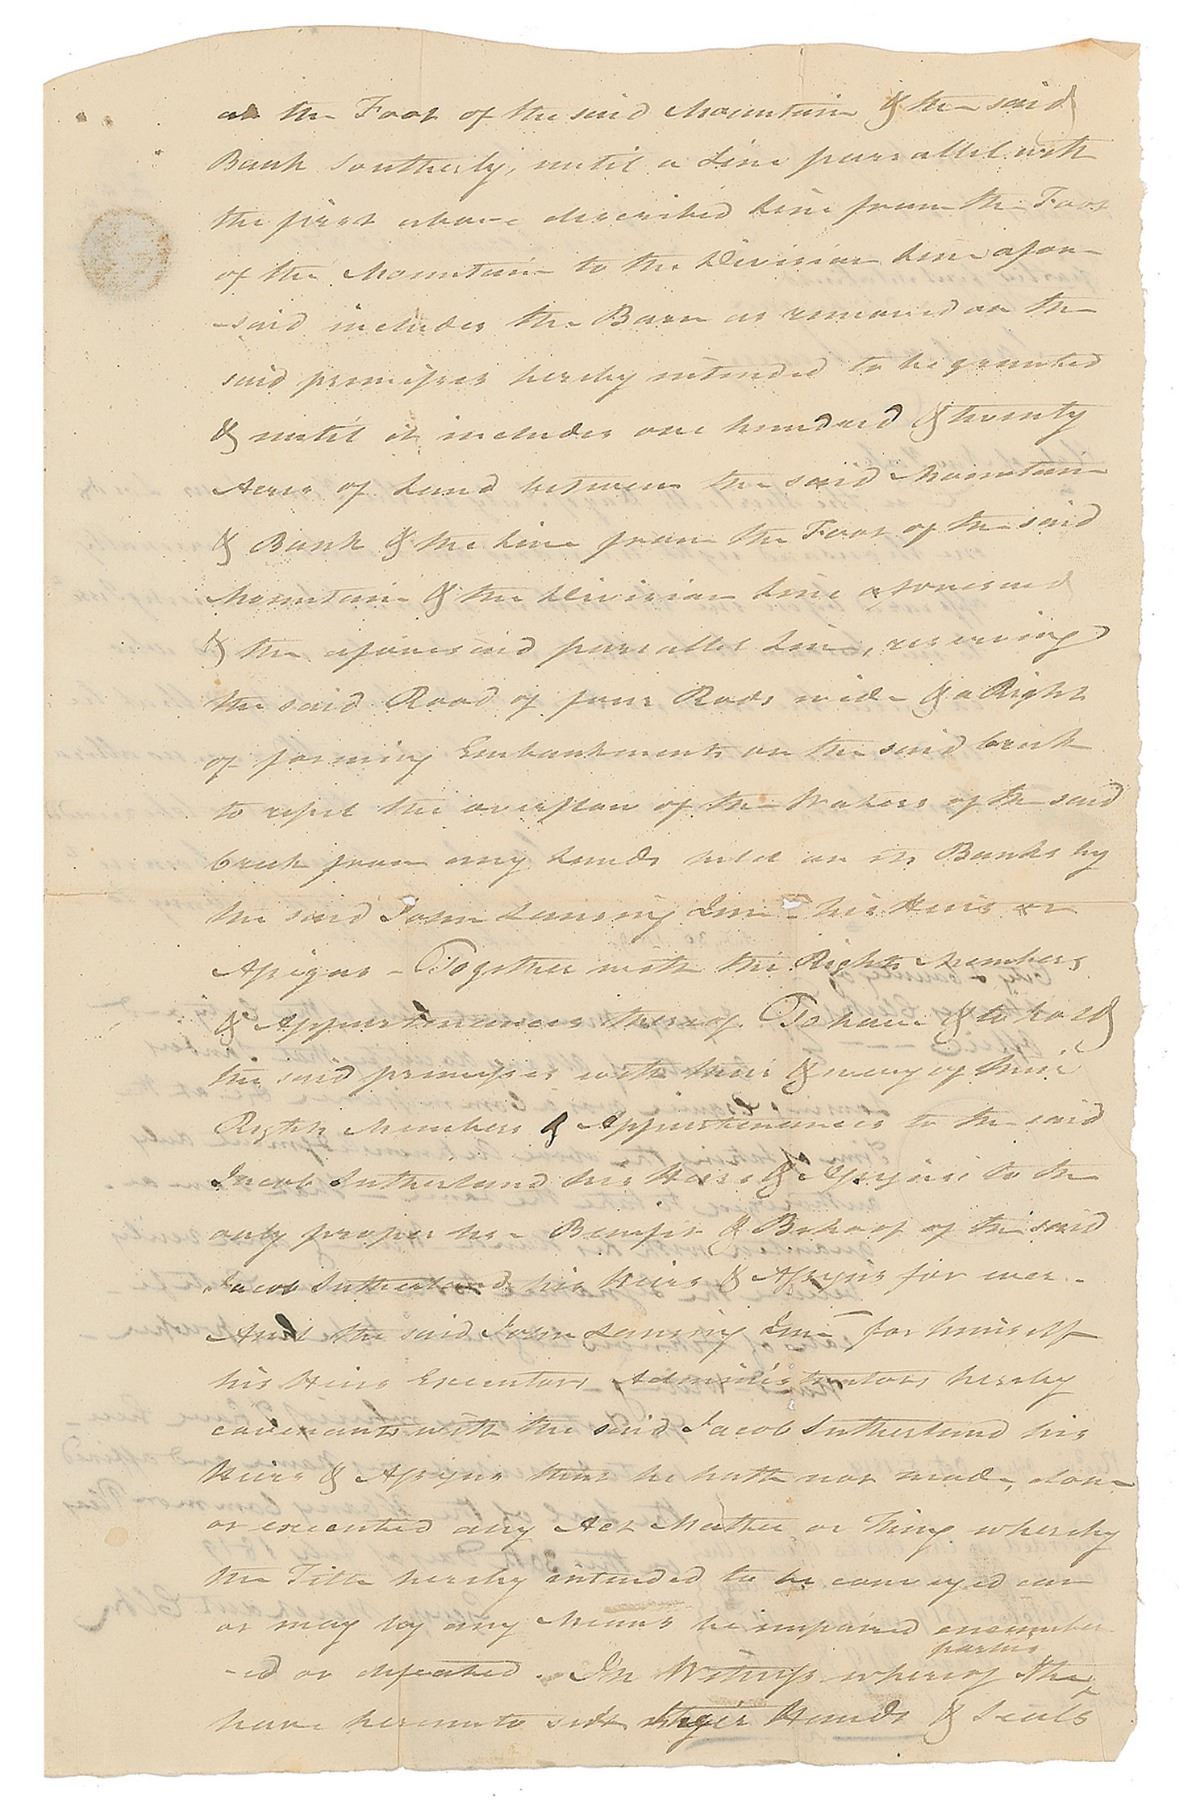 at the Foot of the said Mountain & the said
Bank Southerly, until a Line parrallel with
the first above described Line from the Foot
of the Mountain to the Division Line afore
-said includes the Barn as removed on the
said premises hereby intended to be granted
& until it includes one hundred & twenty
Acres of Land between the said Mountain
& Bank & the Line from the Foot of the said
Mountain & the Division Line aforesaid
& the aforesaid parrallel Line, reserving
the said Road of four Rods wide & a Right
of forming Embankments on the said Creek
to repel the overflow of the Waters of the said
Creek from any Lands held on its Banks by
the said John Lansing Jun. his Heirs or
Assigns - Together with the Rights Members
& Appurtenances thereof. To have & to hold
the said premisses with their & every of their
Rights Members & Appurtenances to the said
Jacob Sutherland his Heirs & Assigns to the
only proper use Benefit & Behoof of the said
Jacob Sutherland his Heirs & Assigns for ever.
And the said John Lansing Jun. for himself
his Heirs Executors Administrators hereby
covenants with the said Jacob Sutherland his
Heirs & Assigns that he hath not made, done
or executed any Act Matter or Thing whereby
the Title hereby intended to be conveyed can
or may by any Means be impaired encumber
-ed or defeated. In Witness whereof the parties
have hereunto set their Hands & Seals